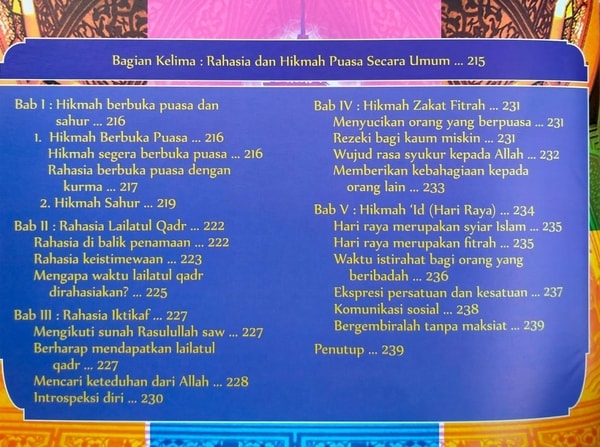 Bagian Kelima : Rahasia dan Hikmah Puasa Secara Umum ... 215
Bab I : Hikmah berbuka puasa dan
sahur ... 216
1. Hikmah Berbuka Puasa ... 216
Hikmah segera berbuka puasa ... 216
Rahasia berbuka puasa dengan
kurma ... 217
2. Hikmah Sahur ... 219
Bab II : Rahasia Lailatul Qadr ... 222
Rahasia di balik penamaan ... 222
Rahasia keistimewaan ... 223
Mengapa waktu lailatul qadr
dirahasiakan? ... 225
Bab III : Rahasia Iktikaf ... 227
Mengikuti sunah Rasulullah saw ... 227
Berharap mendapatkan lailatul
qadr ... 227
Mencari keteduhan dari Allah ... 228
Introspeksi diri ... 230
Bab IV : Hikmah Zakat Fitrah ... 231
Menyucikan orang yang berpuasa ... 231
Rezeki bagi kaum miskin ... 231
Wujud rasa syukur kepada Allah ... 232
Memberikan kebahagiaan kepada
orang lain ... 233
Bab V : Hikmah 'Id (Hari Raya) ... 234
Hari raya merupakan syiar Islam ... 235
Hari raya merupakan fitrah ... 235
Waktu istirahat bagi orang yang
beribadah ... 236
Ekspresi persatuan dan kesatuan ... 237
Komunikasi sosial ... 238
Bergembiralah tanpa maksiat ... 239
Penutup ... 239